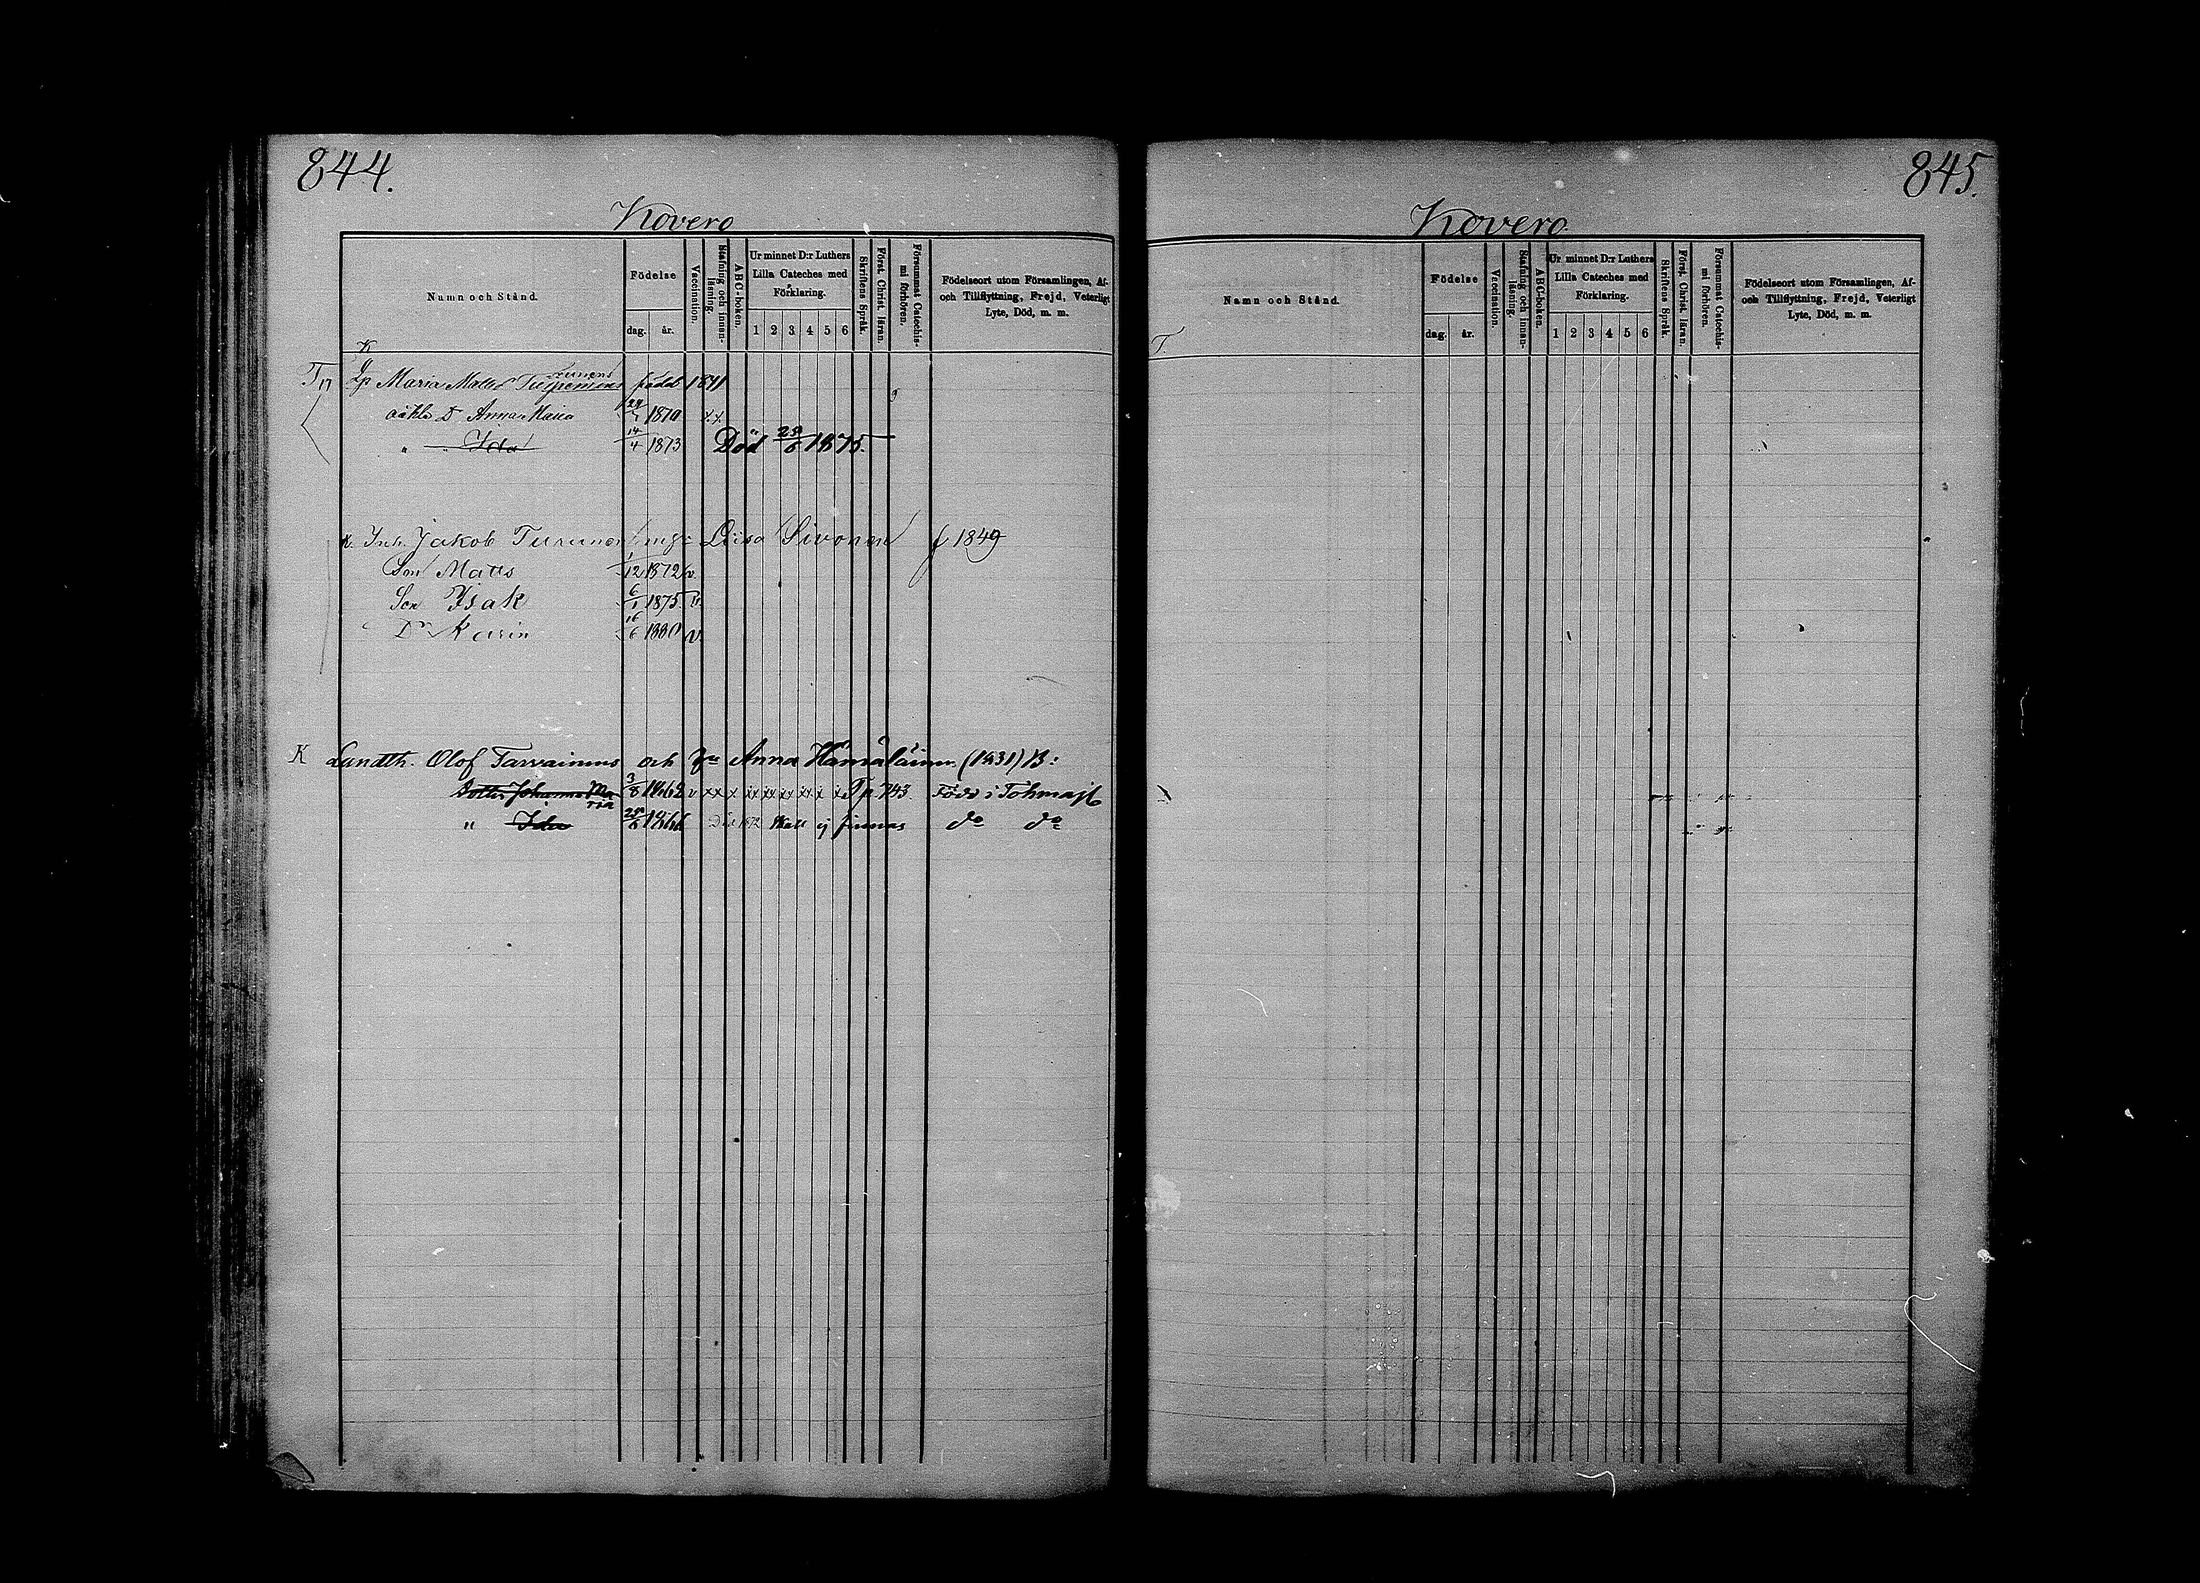 844.
Kovero
Namn och Stånd.
Födelse
dag. år.
Vaccination.
Stafning och innan-läsning.
ABC-boken.
Ur minnet D:r Luthers Lilla Cateches med Förklaring.
1 2 3 4 5 6
Skriftens Språk.
Först. Christ. läran.
Försummat Catechis-mi förhören.
Födelseort utom Församlingen, Af- och Tillflyttning, Frejd, Veterligt Lyte, Död, m. m.
K
Maria Matts född 1841
äkta Dr Anna Maria 1870 x x
" " Ida 14/4 1873 Död 1875.
Inh. Jakob Turunen Liisa Sivonen f 1849
Son Matts 1/12 1872 v.
Son Isak 6/1 1875 v.
Dr Karin 16/6 1880 v.
K Landth. Olof Tarvainens och Anna Hämäläinen (1831) B:
Dotter Johanna Maria 3/8 1862 v xx x xx xx xx xx x x T p 743 Född i Tohmajl
" Ida 1866 ej finnas do do
845.
Kovero
Namn och Stånd.
Födelse
dag. år.
Vaccination.
Stafning och innan-läsning.
ABC-boken.
Ur minnet D:r Luthers Lilla Cateches med Förklaring.
1 2 3 4 5 6
Skriftens Språk.
Först. Christ. läran.
Försummat Catechis-mi förhören.
Födelseort utom Församlingen, Af- och Tillflyttning, Frejd, Veterligt Lyte, Död, m. m.
T.